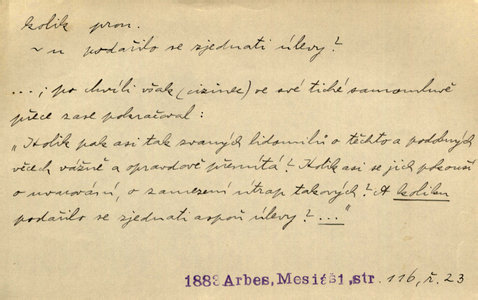 kolik pron.
~ u podařilo se zjednati úlevy?
...; po chvíli však (cizinec) ve své tiché samomluvě
přece zase pokračoval:
„Kolik pak asi tak zvaných lidomilů o těchto a podobných
věcech vážně a opravdově přemítá? Kolik asi se jich pokouší
o uvarování, o zamezení útrap takových? A koliku
podařilo se zjednati aspoň úlevy? ..."
1883 Arbes, Mesiáš, str. 116, ř. 23